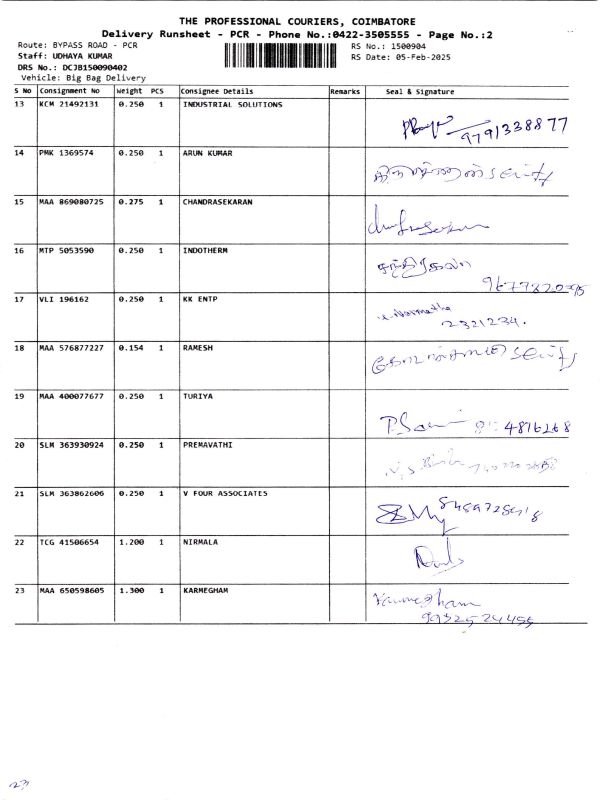 THE PROFESSIONAL COURIERS, COIMBATORE
Delivery Runsheet - PCR - Phone No.:0422-3505555 - Page No.:2
Route: BYPASS ROAD - PCR
RS No.: 1500904
Staff: UDHAYA KUMAR
RS Date: 05-Feb-2025
DRS No.: DCJB150090402
Vehicle: Big Bag Delivery
S No Consignment No Weight PCS Consignee Details Remarks Seal & Signature
13 KCM 21492131 0.250 1 INDUSTRIAL SOLUTIONS
9791338877
14 PMK 1369574 0.250 1 ARUN KUMAR
15 MAA 869080725 0.275 1 CHANDRASEKARAN
16 MTP 5053590 0.250 1 INDOTHERM
17 VLI 196162 0.250 1 KK ENTP
2321234.
18 MAA 576877227 0.154 1 RAMESH
19 MAA 400077677 0.250 1 TURIYA
20 SLM 363930924 0.250 1 PREMAVATHI
21 SLM 363862606 0.250 1 V FOUR ASSOCIATES
22 TCG 41506654 1.200 1 NIRMALA
23 MAA 650598605 1.300 1 KARMEGHAM
Karmegham